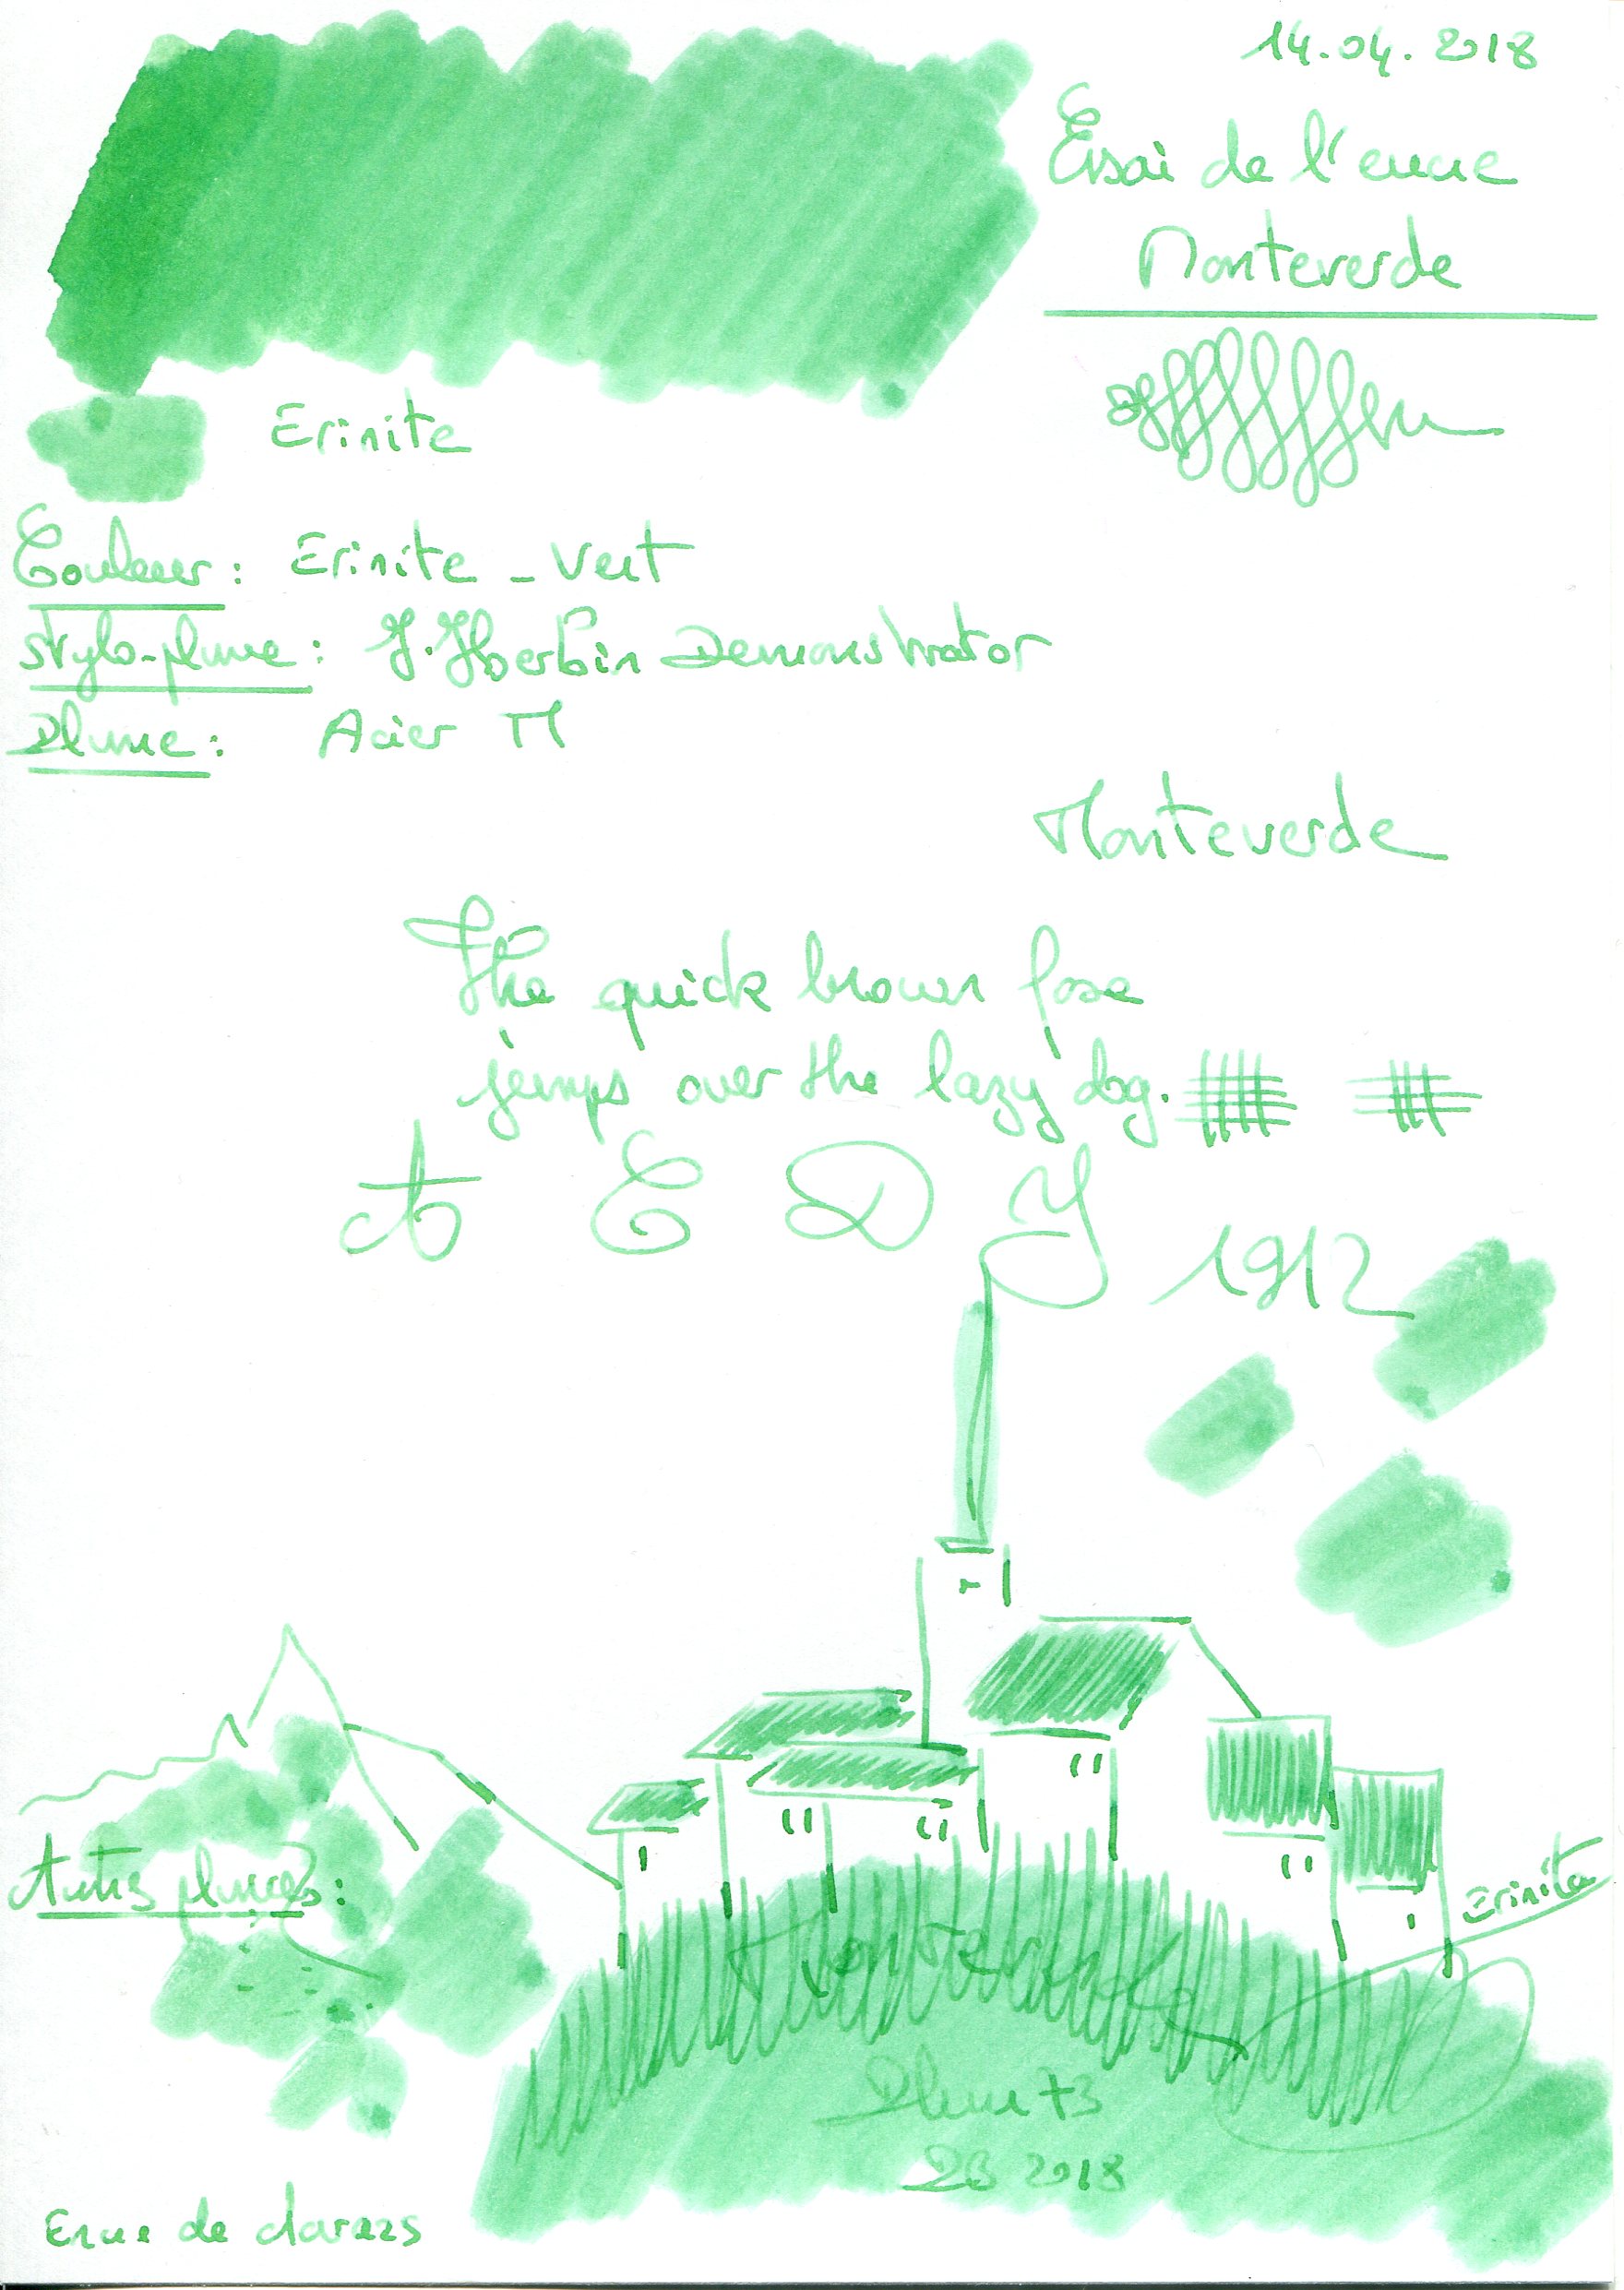 14.04.2018
Essai de l'encre
Monteverde
Erinite
Couleur : Erinite - Vert
Stylo-plume : J. Herbin Demonstrator
Plume : Acier M
Monteverde
The quick brown fox
jumps over the lazy dog.
A E D Y 1912
Autres plumes :
Erinite
Monteverde
Plume 73
2018
Encre de